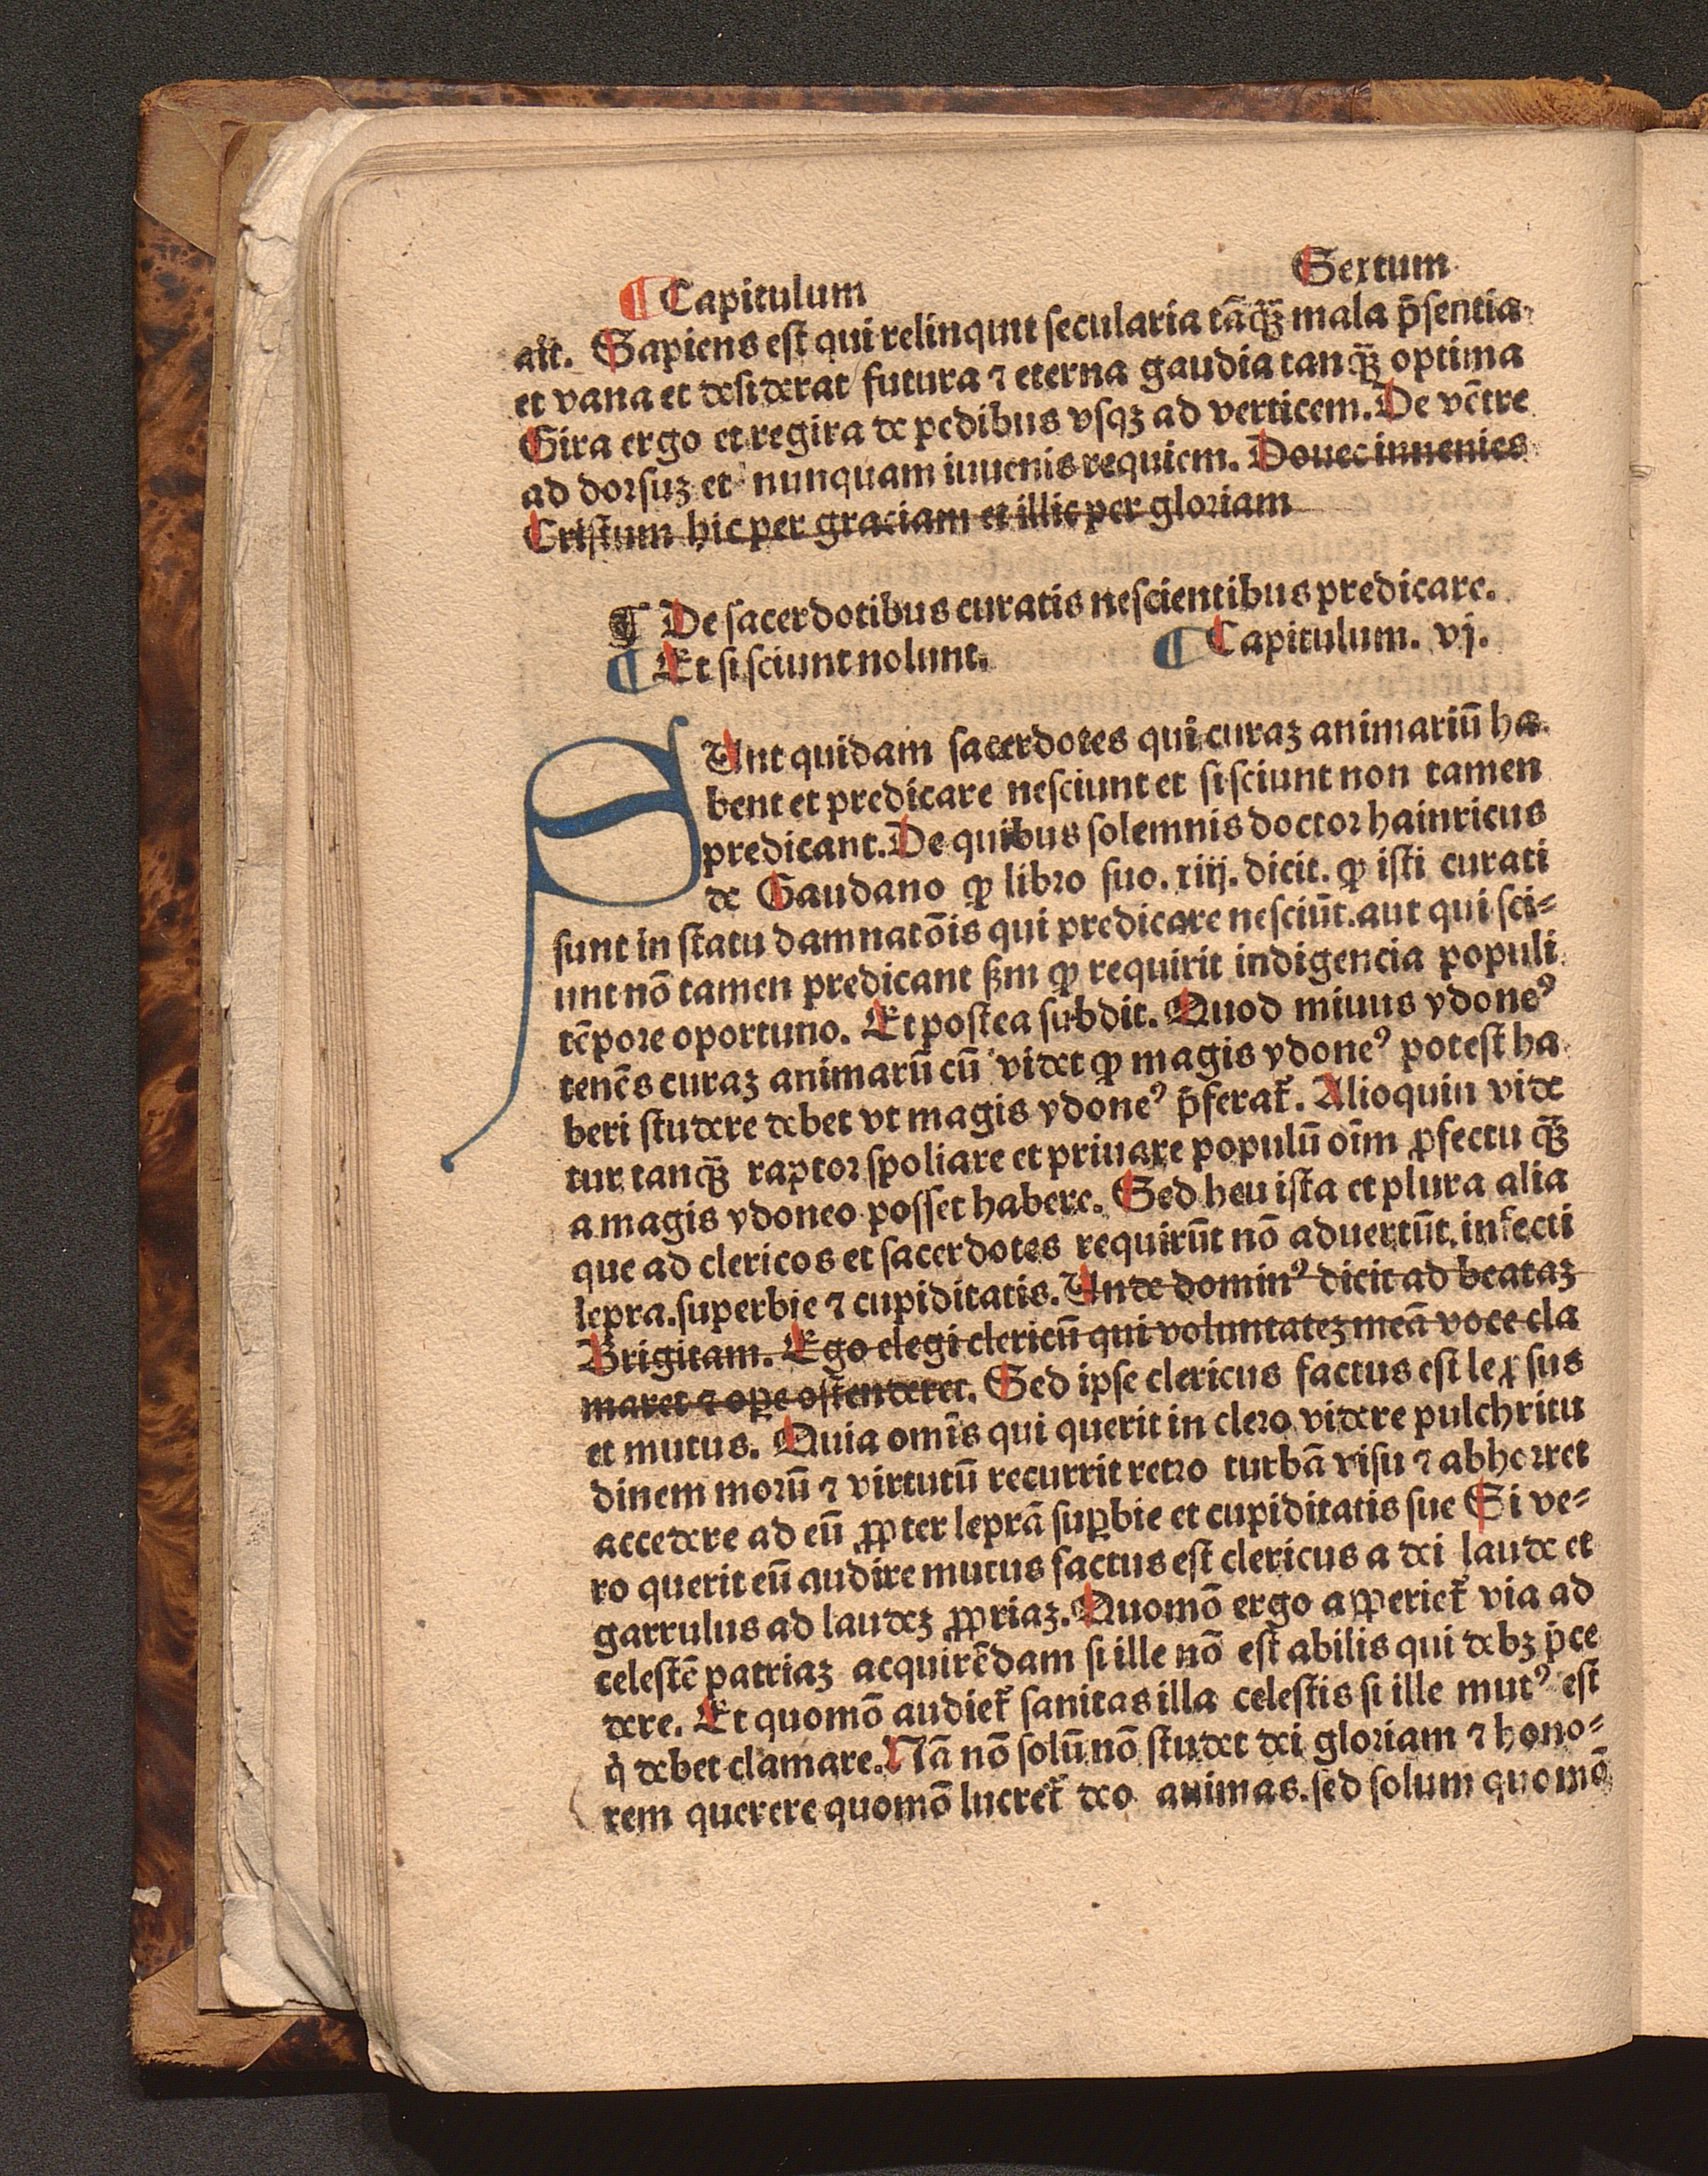 ¶ Capitulum Sextum
ait. Sapiens est qui relinqunt secularia tāq̄ꝫ mala p̄sentia
et vana et desiderat futura ⁊ eterna gaudia tanq̄ꝫ optima
Gira ergo et regira de pedibus vsqꝫ ad verticem. De vētre
ad dorsuꝫ et nunquam iuuenis requiem. Douec inuenies
Cristum hic per graciam et illic per gloriam
¶ De sacerdotibus curatis nescientibus predicare.
¶ Et si sciunt nolunt. ¶ Capitulum. vj.
SUnt quidam sacerdotes qui curaꝫ animariū ha
bent et predicare nesciunt et si sciunt non tamen
predicant. De quibus solemnis doctor hainricus
de Gaudano ꝙ libro suo. xiij. dicit. ꝙ isti curati
sunt in statu damnatōis qui predicare nesciūt. aut qui sci⸗
unt nō tamen predicant ßm ꝙ requirit indigencia populi
tēpore oportuno. Et postea subdit. Quod miuus ydoneꝰ
tenēs curaꝫ animarū cū videt ꝙ magis ydoneꝰ potest ha
beri studere debet vt magis ydoneꝰ p̄ferat̄. Alioquin vide
tur tanq̄ꝫ raptor spoliare et priuare populū oīm ꝓfectu q̄ꝫ
a magis ydoneo posset habere. Sed heu ista et plura alia
que ad clericos et sacerdotes requirūt nō aduertūt. infecti
lepra. superbie ⁊ cupiditatis. Unde dominꝰ dicit ad beataꝫ
Brigitam. Ego elegi clericū qui voluntateꝫ meā voce cla
maret ⁊ oꝑe ostenderet. Sed ipse clericus factus est leprsus
et mutus. Quia omīs qui querit in clero videre pulchritu
dinem morū ⁊ virtutū recurrit retro turbā visu ⁊ abhorret
accedere ad eū ꝓpter leprā suꝑbie et cupiditatis sue Si ve⸗
ro querit eū audire mutus factus est clericus a dei laude et
garrulus ad laudeꝫ ꝓpriaꝫ. Quomō ergo apperiet̄ via ad
celestē patriaꝫ acquirēdam si ille nō est abilis qui debꝫ p̄ce
dere. Et quomō audiet̄ sanitas illa celestis si ille mutꝰ est
q̇ debet clamare. Nā nō solū nō studet dei gloriam ⁊ hono⸗
rem querere quomō lucret̄ deo auimas. sed solum quomō